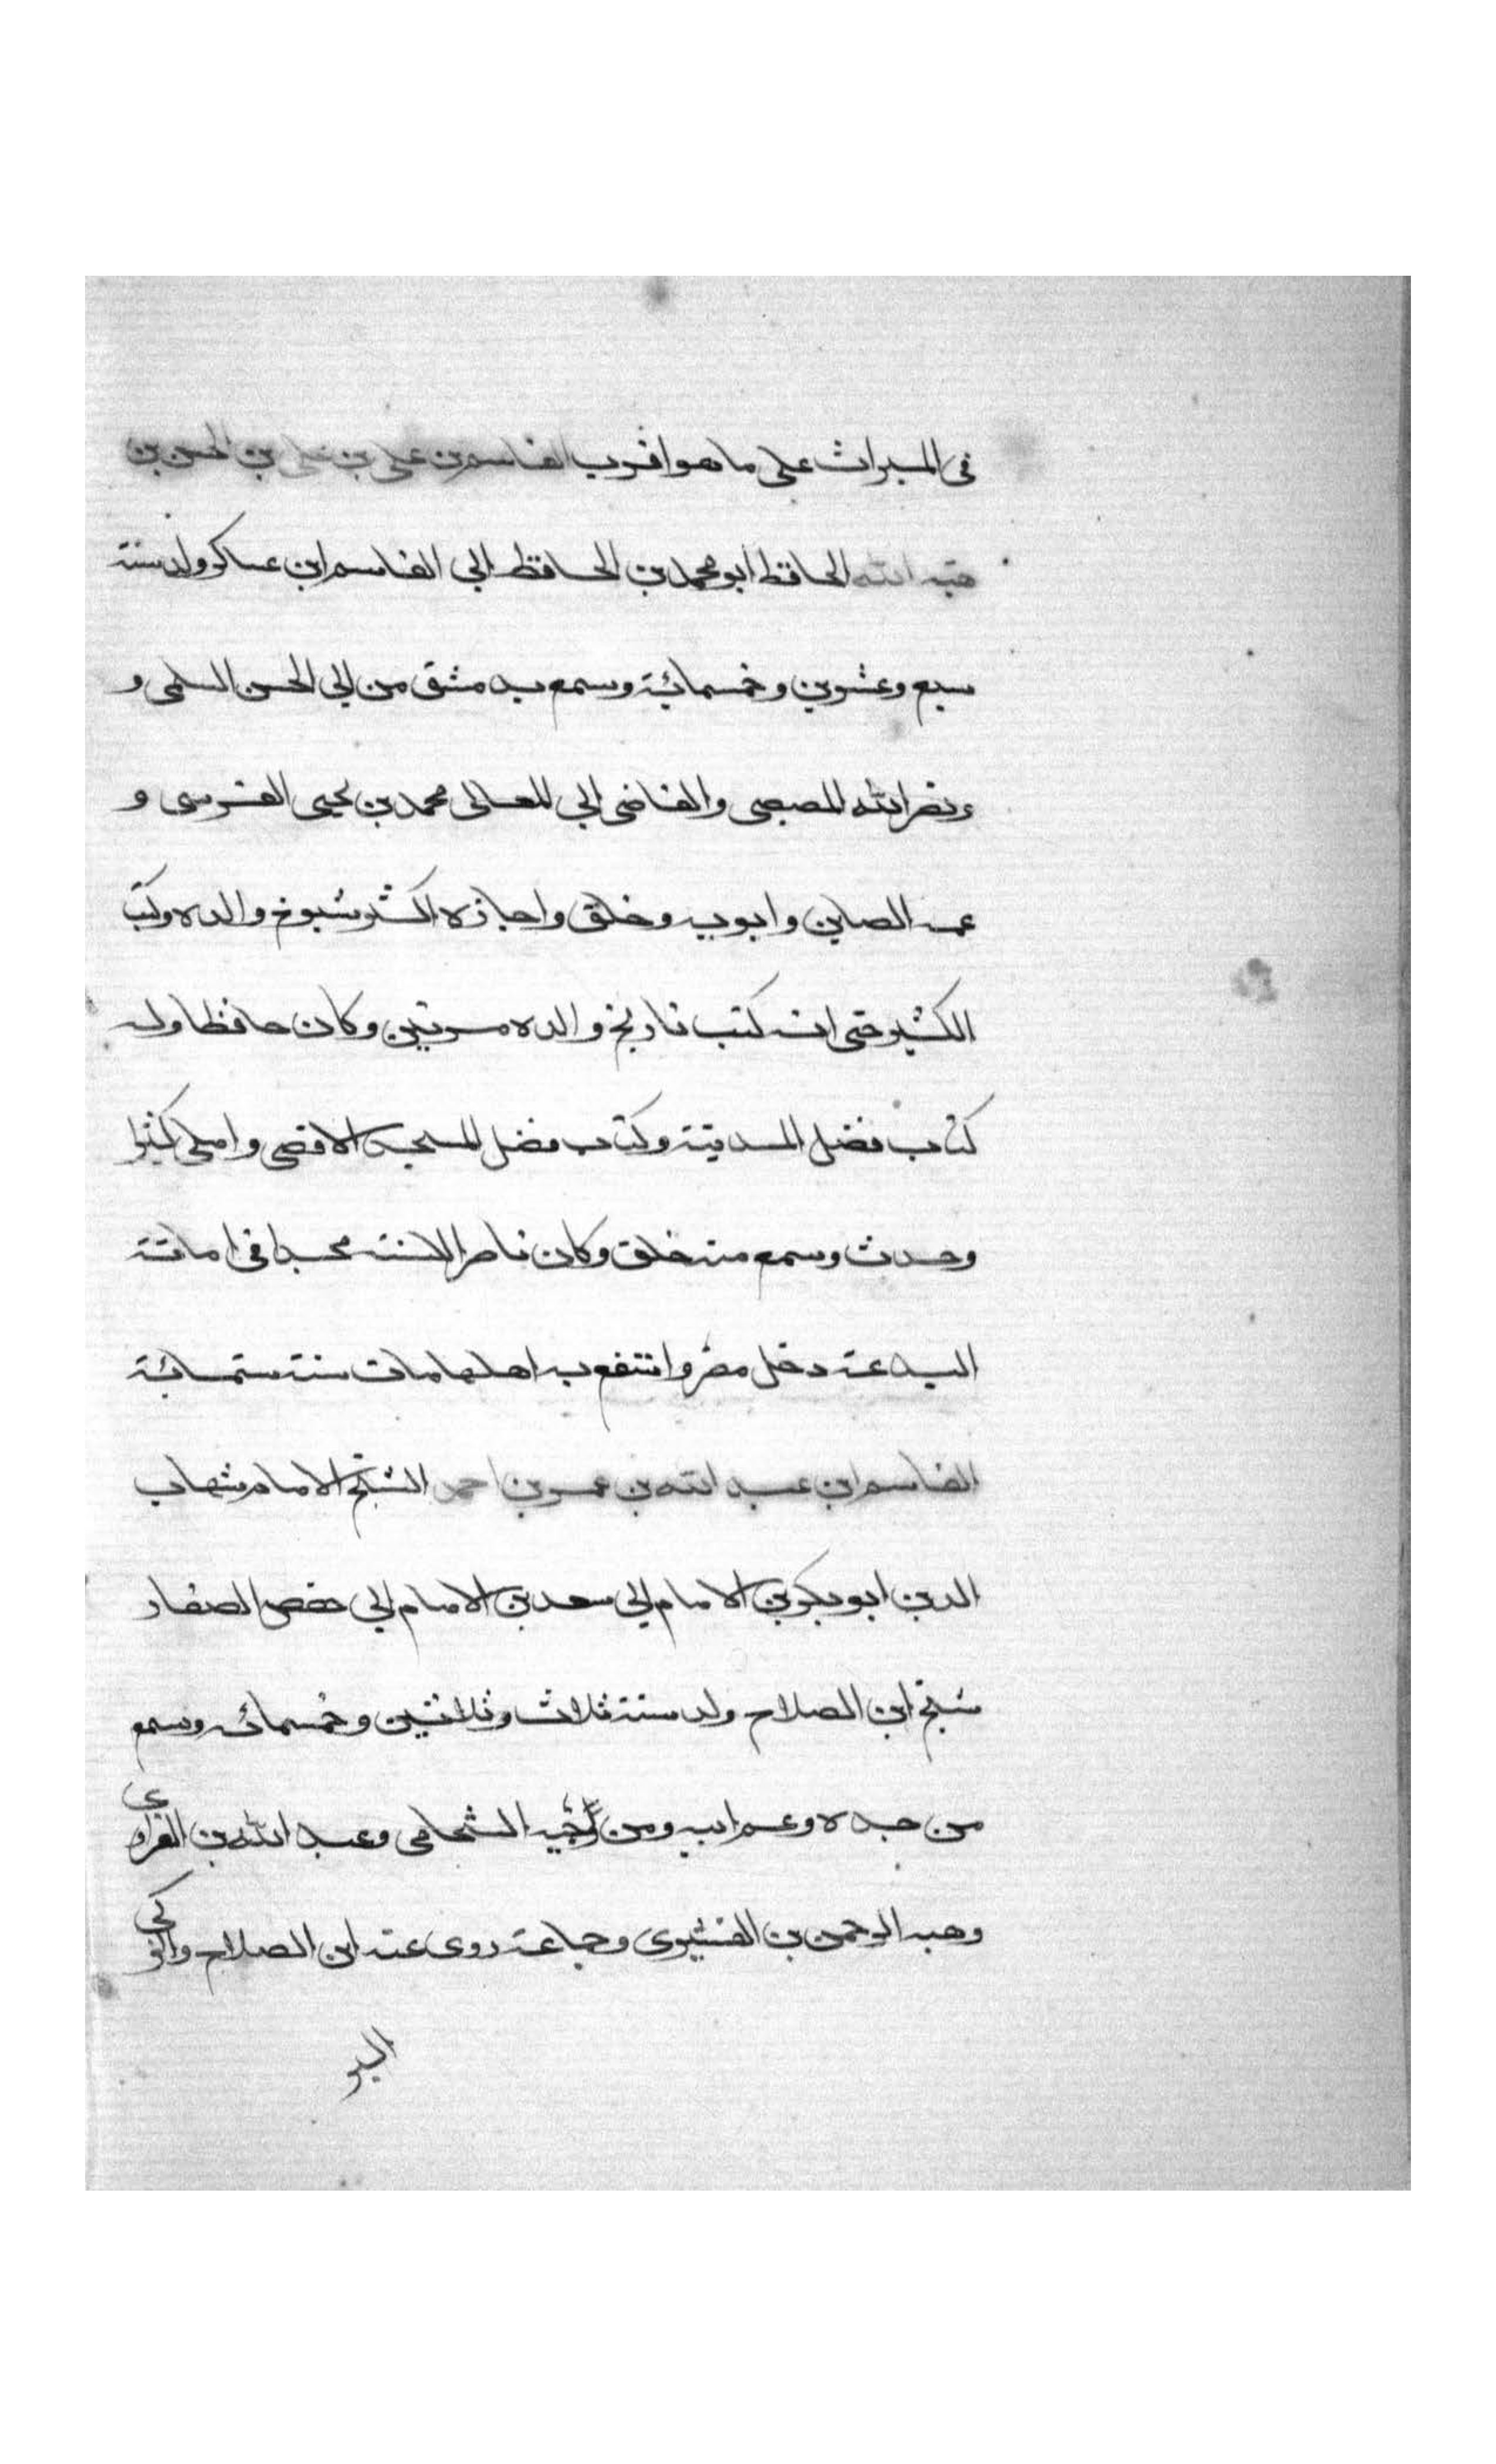 في الميراث على ما هو اقرب القاسم بن علي بن علي بن الحسن بن
هبة الله الحافظ ابو محمد بن الحافظ ابي القاسم ابن عساكر ولد سنة
سبع وعشرين وخمسمائة وسمع بدمشق من ابي الحسن السلمي و
ونصر الله المصيصي والقاضي ابي المعالي محمد بن يحيى القرسي و
عمه الصاين وابويه وخلق واجازه اكثر شيوخ والده وكتب
الكثير حتى انه كتب تاريخ والده مرتين وكان حافظا وله
كتاب فضل المدينة وكتاب فضل المسجد الاقصى واملى كثيرا
وحدث وسمع منه خلق وكان ناصرا للسنة مجدا في اماتة
البدعة دخل مصر وانتفع به اهلها مات سنة ستمائة
القاسم ابن عبد الله بن عمر بن احمد الشيخ الامام شهاب
الدين ابو بكر بن الامام ابي سعد بن الامام ابي حفص الصفار
شيخ ابن الصلاح ولد سنة ثلاث وثلاثين وخمسمائه وسمع
من جده وعم ابيه ومن وجيه الشحامي وعبد الله بن الفراوي
وهبه الرحمن بن القشيري وجماعة روى عنه ابن الصلاح والزكي
البر